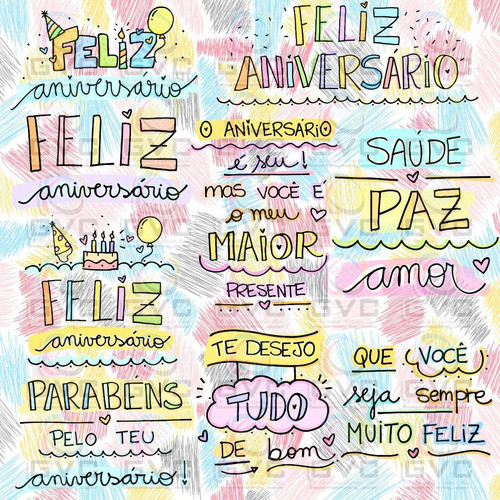 FELIZ
aniversário
FELIZ
aniversário
FELIZ
aniversário
PARABENS
PELO TEU
aniversário!
FELIZ
ANIVERSARIO
O ANIVERSÁRIO
é seu!
MAS VOCÊ É
o meu
MAIOR
PRESENTE
TE DESEJO
TUDO
DE bom
SAÚDE
PAZ
amor
QUE VOCÊ
seja sempre
MUITO FELIZ
GVC